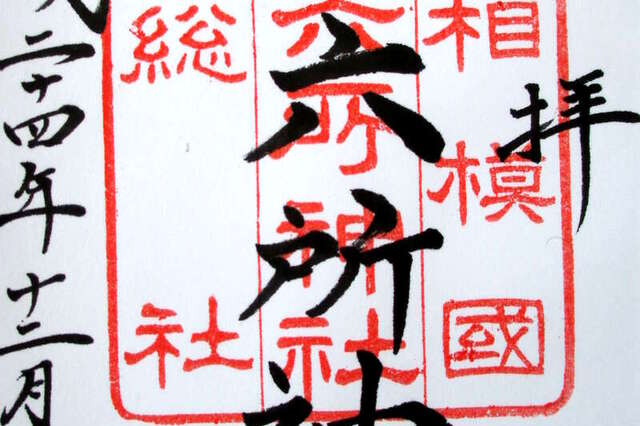 拝
相模國
六所神社
総社
六所神
二十四年十二月